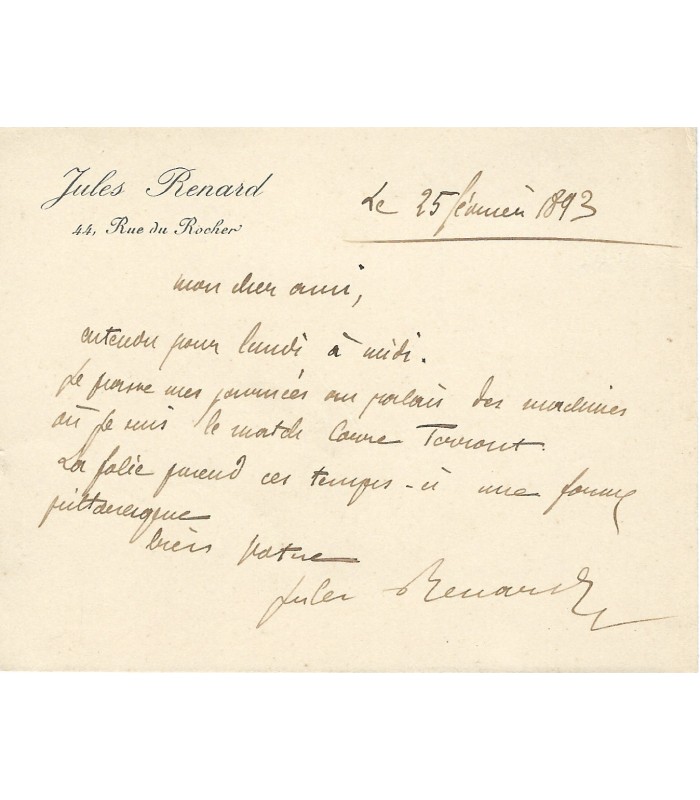 Jules Renard
44, Rue du Rocher
Le 25 février 1893
mon cher ami,
entendu pour lundi à midi.
Je passe mes journées au palais des machines
où je suis le match Corre Terront.
La folie prend ces temps-ci une forme
pittoresque
bien votre
Jules Renard